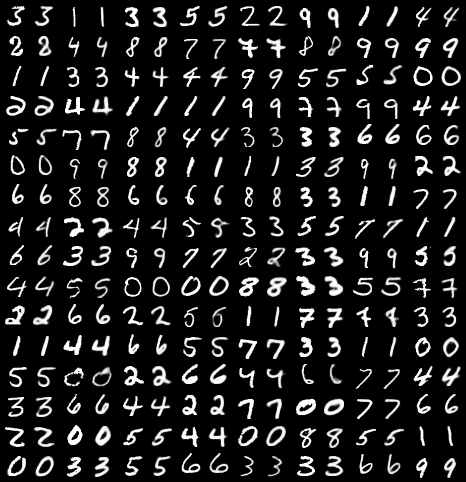 3 3 1 1 3 3 5 5 2 2 9 9 1 1 4 4
2 2 4 4 8 8 7 7 7 7 8 8 9 9 9 9
1 1 3 3 4 4 4 4 9 9 5 5 5 5 0 0
2 2 4 4 1 1 1 1 9 9 7 7 9 9 4 4
5 5 7 7 8 8 4 4 3 3 3 3 6 6 6 6
0 0 9 9 8 8 1 1 1 1 3 3 9 9 2 2
6 6 8 8 6 6 6 6 8 8 3 3 1 1 7 7
4 4 2 2 4 4 5 5 3 3 5 5 7 7 1 1
6 6 3 3 9 9 7 7 2 2 3 3 9 9 5 5
4 4 5 5 0 0 0 0 8 8 3 3 5 5 7 7
2 2 6 6 2 2 5 6 1 1 7 7 4 4 3 3
1 1 4 4 6 6 5 5 7 7 3 3 1 1 0 0
5 5 0 0 2 2 6 6 4 4 6 6 7 7 4 4
3 3 6 6 4 4 2 2 7 7 0 0 7 7 6 6
2 2 0 0 5 5 4 4 0 0 8 8 5 5 1 1
0 0 3 3 5 5 6 6 3 3 3 3 6 6 9 9